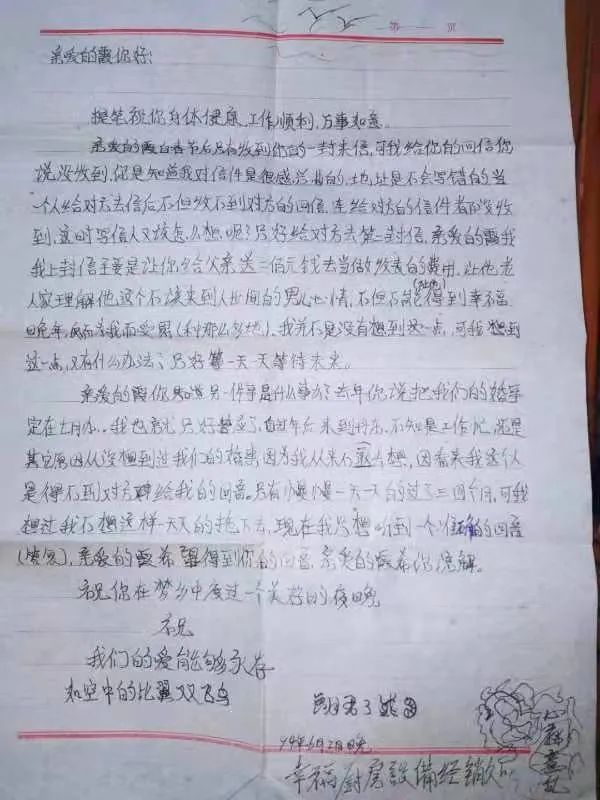 第 页
亲爱的霞你好:
提笔祝你身体健康,工作顺利,万事如意。
亲爱的霞自春节后只有收到你的一封来信,可我给你的回信你
说没收到,你是知道我对信件是很感兴趣的,地址是不会写错的当
一个人给对方去信后不但收不到对方的回信,连给对方的信件都没收
到,这时写信人又该怎么想呢?只好给对方去第二封信,亲爱的霞我
我上封信主要是让你给父亲送二佰元钱去当做收麦的费用,让他老
人家理解他这个不该来到人世间的男儿心情,不但不能让他得到幸福
晚年,反而为我而受累(种那么多地),我并不是没有想到这一点,可我想到
这一点,又有什么办法,只好等一天一天等待未来。
亲爱的霞你知道另一件事是什么事吗?去年你说把我们的婚事
定在七月份,我也就只好答应了,自过年后来到,不知是工作忙,还是
其它原因从没想到过我们的婚事,因为我从来不去想,因看来我这个人
是得不到对方给我的回音。只有慢慢一天一天的过了三四个月,可我
想过我不想这样一天天的拖下去,现在我只想听到一个准确的回音
亲爱的霞希望得到你的回音,亲爱的霞希你谅解。
祝你在梦乡中度过一个美好的夜晚
祝
我们的爱能够永存
和空中的比翼双飞鸟
幸福厨房设备经销